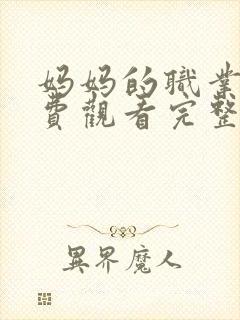 妈妈的職業
費觀看完整
異界魔人